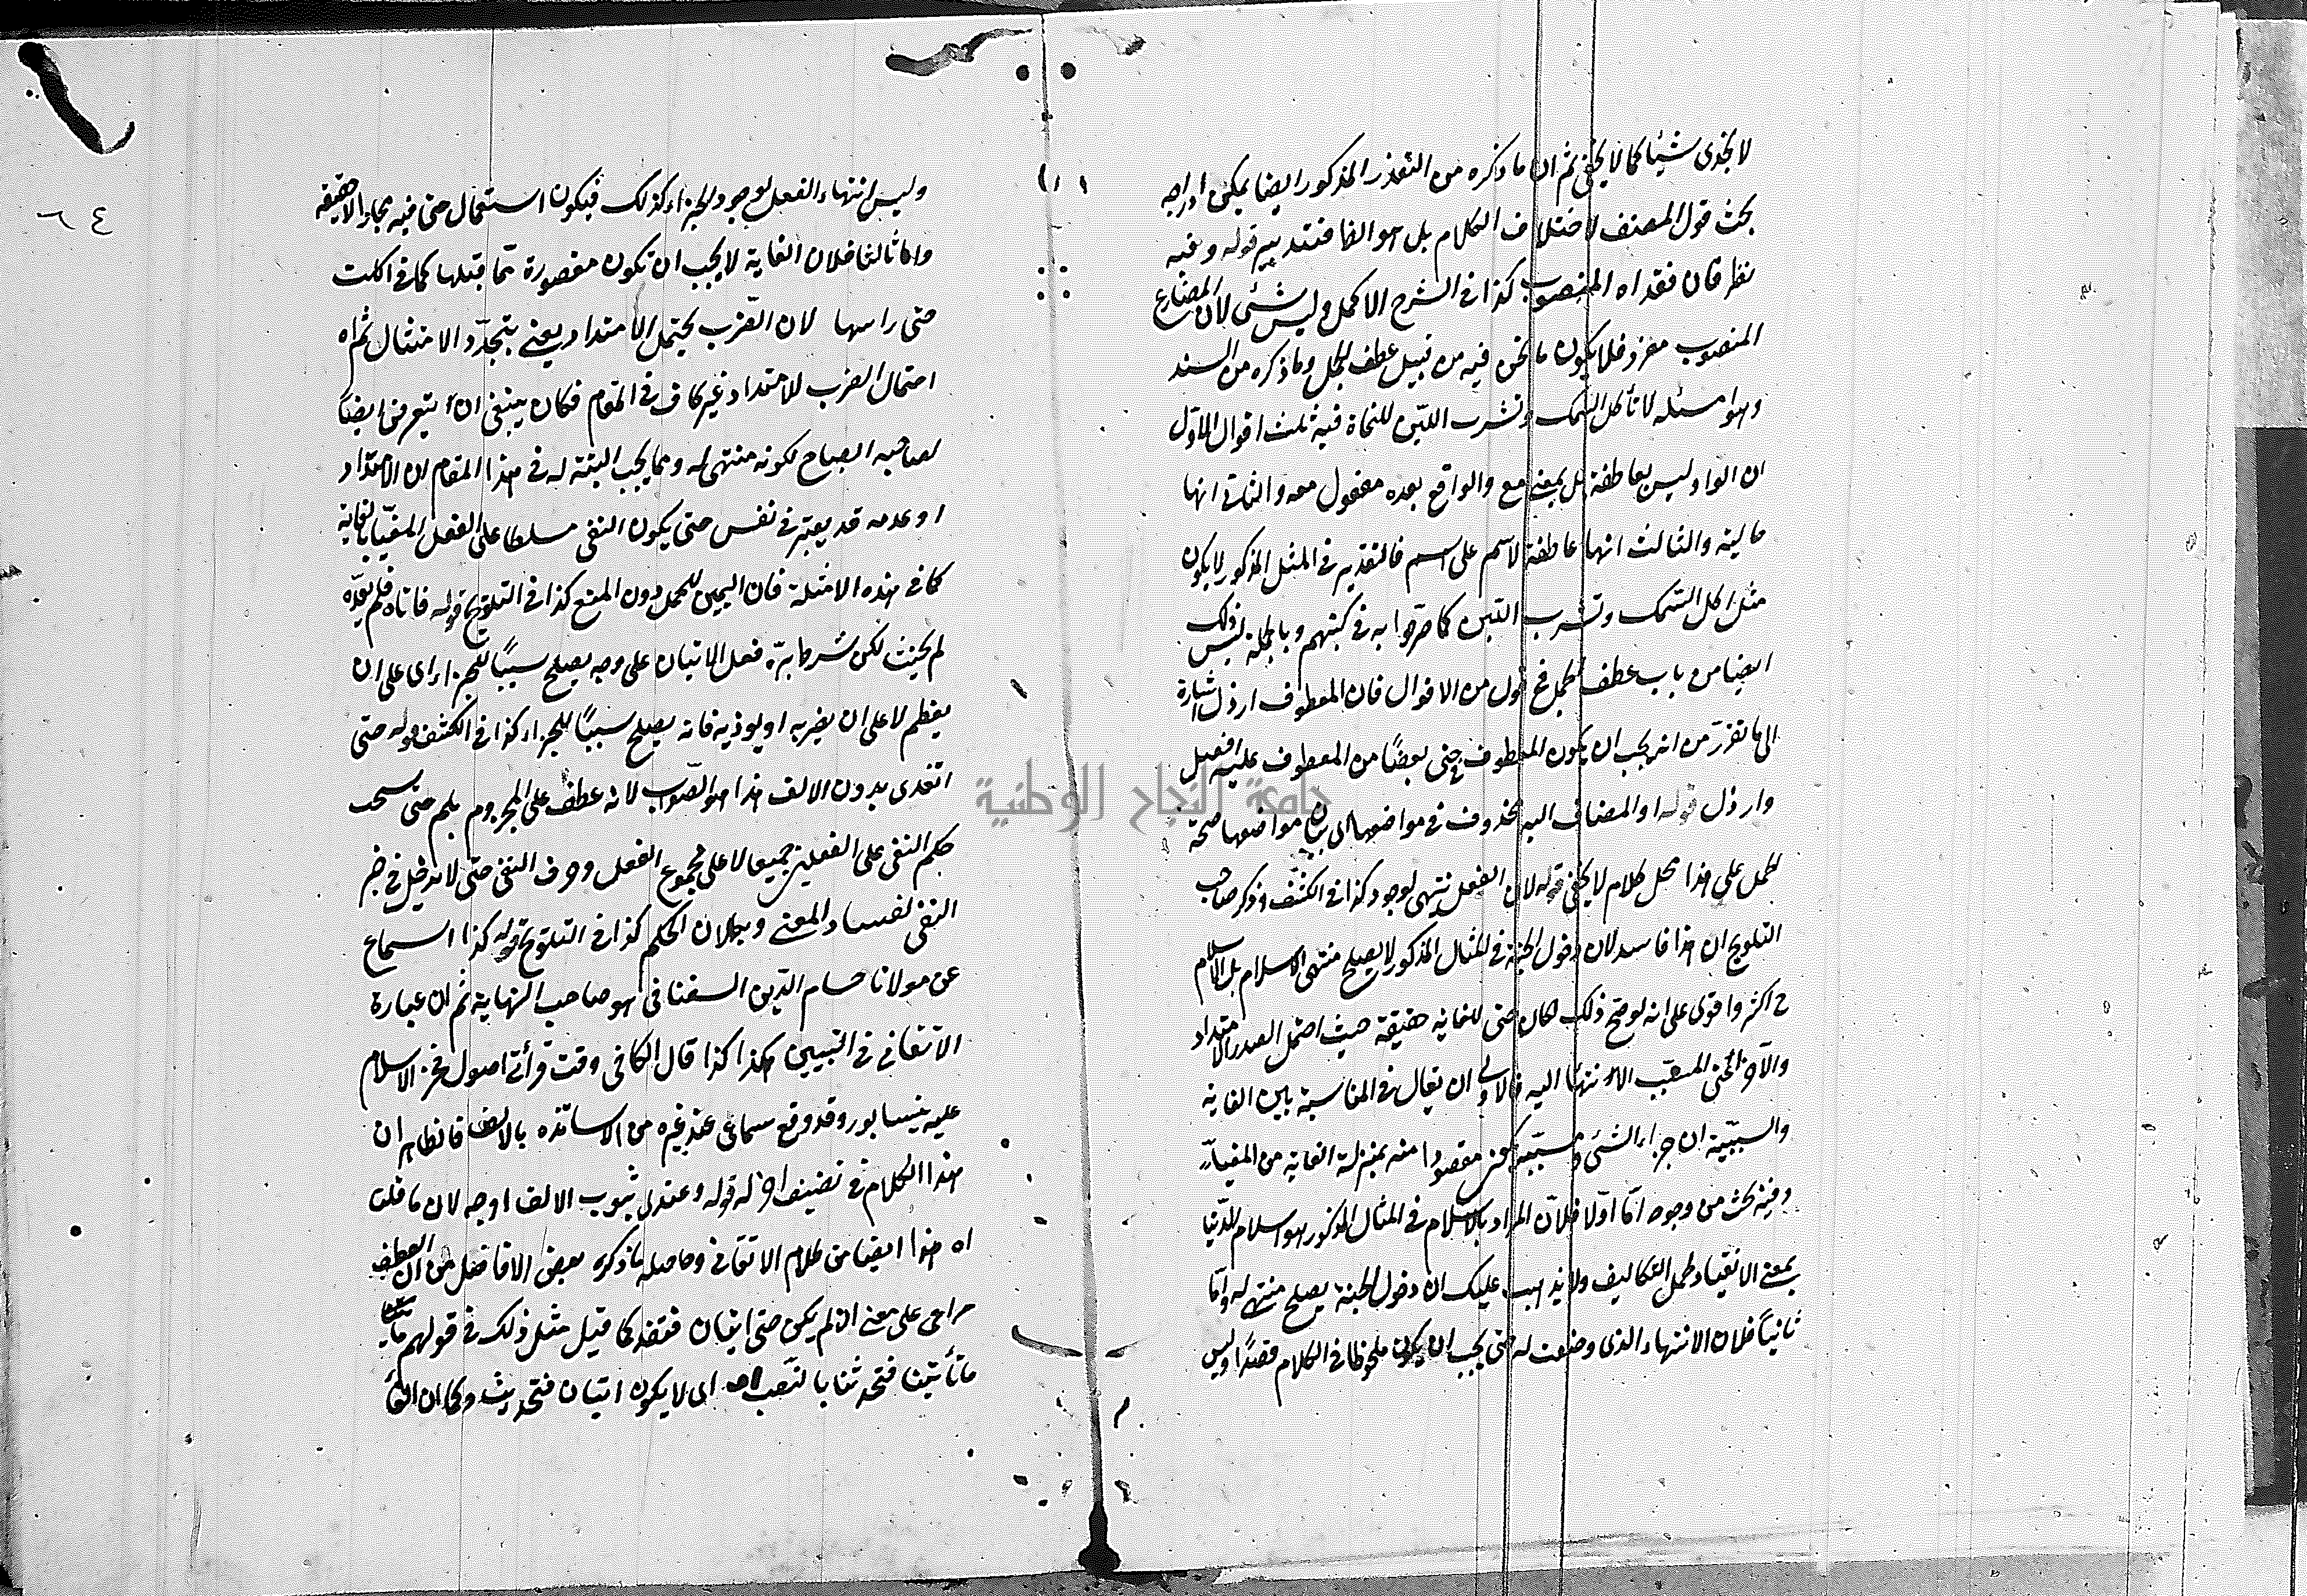 لا يجدى شيئا كما لا يخفى ثم ان ما ذكره من التعذر المذكور ايضا يمكن ادراجه
تحت قول المصنف لاختلاف الكلام بل هو الفا فتدبير قوله وفيه
نظر فان فقداه المنصوب كذا فى الشرح الاكمل وليس شئ لان المضارع
المنصوب مفرد فلا يكون ما نحن فيه من قبيل عطف الجمل وما ذكره من السند
وهو مسئلة لا تأكل السمك وتشرب اللبن للنحاة فيه ثلث اقوال الاول
ان الواو ليس بعاطفة بل بمعنى مع والواقع بعده مفعول معه والثانى انها
حالية والثالث انها عاطفة لاسم على اسم فالتقدير فى المثل المذكور لا يكون
مثل اكل السمك وشرب اللبن كما صرحوا به فى كتبهم وبالجملة ليس ذلك
ايضا من باب عطف الجمل فى قول من الاقوال فان المعطوف ارذل اشارة
الى ما تقرر من انه يجب ان يكون المعطوف بحتى بعضا من المعطوف عليه افضل
وارذل قوله او المضاف اليه محذوف فى مواضعها اى بيان مواضعها صحة
لحمل على هذا محل كلام لا يخفى قوله لان الفعل ينتهى لوجود كذا فى الكشف وذكر صاحب
التلويح ان هذا فاسد لان دخول الجنة فى المثال المذكور لا يصلح منتهى الاسلام بل الاسلام
ح اكثر واقوى على انه لو صح ذلك لكان حتى للغاية حقيقة حيث احتمل الصدر الامتداد
والآخر اعنى المسبب الانتهاء اليه فالاولى ان يقال فى المناسبة بين الغاية
والسببية ان جزاء الشئ ومسببه يكون مقصودا منه بمنزلة الغاية من المغيا
وفيه بحث من وجوه اما اولا فلان المراد بالاسلام فى المثال المذكور هو اسلام الدنيا
بمعنى الانقياد لحمل التكاليف ولا يذهب عليك ان دخول الجنة يصلح منتهى له واما
ثانيا فلان الانتهاء الذى وضعت له حتى يجب ان يكون ملحوظا فى الكلام قصدا وليس
٦٤
وليس انتهاء الفعل لوجود الجزاء كذلك فيكون استعمال حتى فيه مجازا لا حقيقة
واما ثالثا فلان الغاية لا يجب ان تكون مقصورة مما قبلها كما فى اكلت
حتى راسها لان الضرب يحتمل الامتداد يعنى بتجدد الامتثال ثم اه
احتمال الضرب للامتداد غير كاف فى المقام فكان ينبغى ان يتعرض ايضا
لصاحبه الصباح لكونه منتهى له ومما يجب البتة له فى هذا المقام ان الامتداد
او عدمه قد يعتبر فى نفس حتى يكون النفى مسلطا على الفعل المغيا بالغاية
كما فى هذه الامثلة فان اليمين للحمل دون المنع كذا فى التلويح قوله فاتاه فلم يغده
لم يحنث لكن شرط بره فعل الاتيان على وجه يصلح سببا للجزاء اى على ان
يعظم لا على ان يضربه او يوذيه فانه يصلح سببا للجزاء كذا فى الكشف قوله حتى
اتغدى بدون الالف هذا هو الصواب لانه عطف على المجزوم بلم حتى ينسحب
حكم النفى على الفعلين جميعا لا على مجموع الفعل وحرف النفى حتى لا يدخل فى خبر
النفى لفساد المعنى وبطلان الحكم كذا فى التلويح قوله كذا اسماع
عن مولانا حسام الدين السغناقى هو صاحب النهاية ثم ان عبارة
الاتقانى فى التبيين هكذا كذا قال الكافى وقت قرأتى اصول فخر الاسلام
عليه بنيسابور وقد وقع سماعى عند غيره من الاساتذه بالالف فالظاهر ان
هذا الكلام فى تضيف اخر له قوله وعندى ثبوت الالف اوجه لان ما قلت
اه هذا ايضا من كلام الاتقانى وحاصله ما ذكره بعض الافاضل من ان العطف
مراعى على معنى ان لم يكن حتى اتيان فتغد كما قيل مثل ذلك فى قولهم ما
ما تأتينا فتحدثنا بالنصب اى لا يكون اتيان فتحديث وكما ان الفاء
جامعة النجاح الوطنية